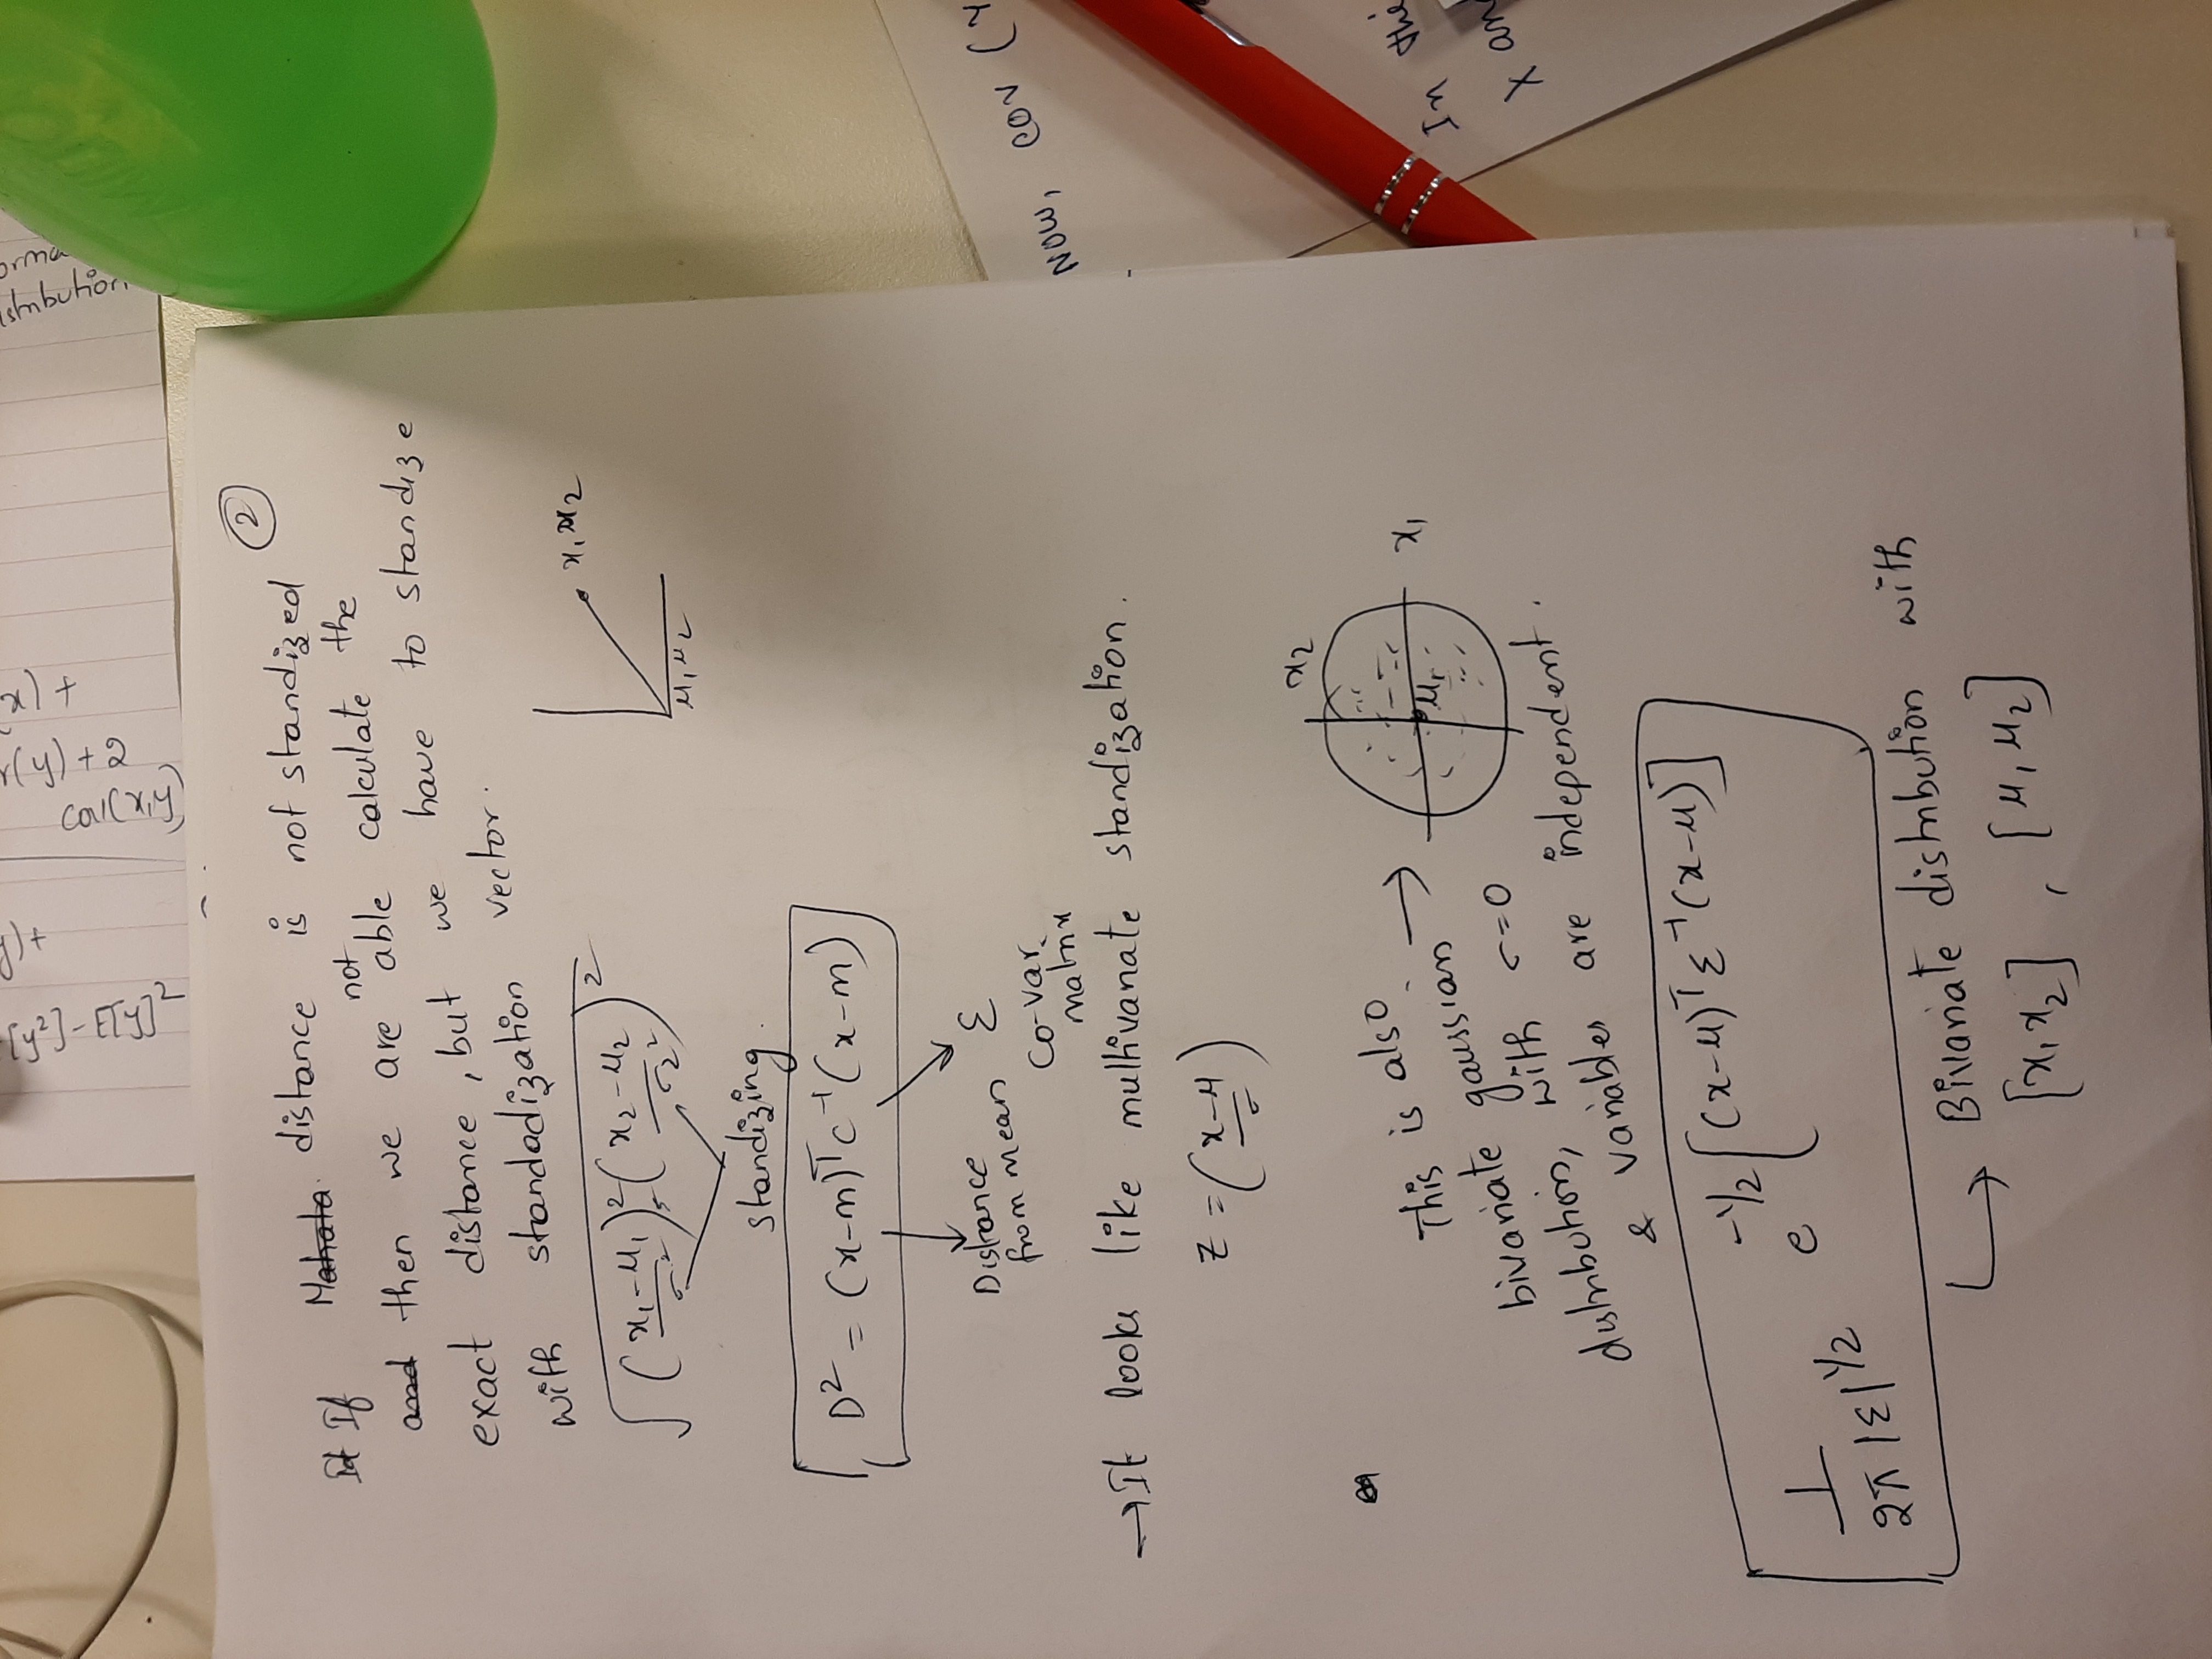 [y²]-E[y]²
y)+
x)+
r(y)+2
cov(x,y)
orma
istribution
②
If distance is not standized
then we are not able calculate the
exact distance, but we have to standize
with standadization vector.
√((x₁-μ₁)/σ²)² ((x₂-μ₂)/σ₂²)²
x₁ x₂
μ₁ μ₂
standizing.
D² = (x-m)ᵀ C⁻¹ (x-m)
Distance
from mean
Σ
Co-var.
matrix
→ It looks like multivariate standization.
Z = ((x-μ)/σ)
x₂
x₁
This is also →
bivariate gaussian
distribution, with σ=0
& variables are independent.
1/(2π |Σ|^1/2) e^-1/2 [(x-μ)ᵀ Σ⁻¹ (x-μ)]
↳ Bivariate distribution with
[x₁ x₂] , [μ₁ μ₂]
Now, cov (
In the
X an